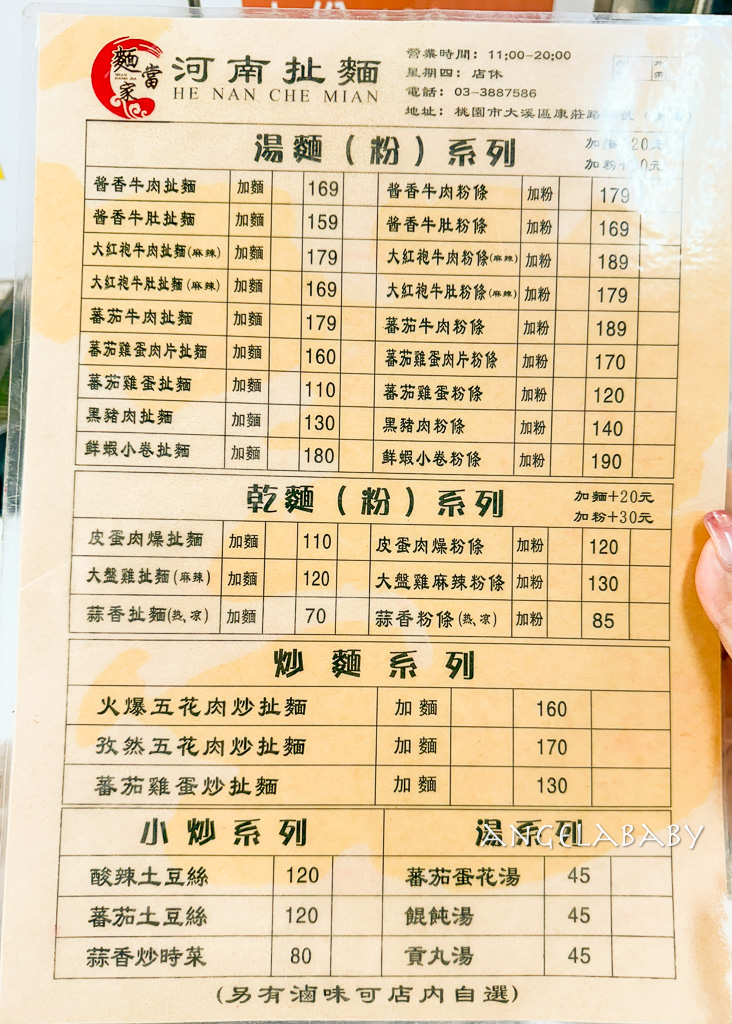 麵當家
河南扯麵
HE NAN CHE MIAN
營業時間：11:00-20:00
星期四：店休
電話：03-3887586
地址：桃園市大溪區康莊路
湯麵（粉）系列
加麵+20元
加粉+30元
酱香牛肉扯麵 加麵 169 酱香牛肉粉條 加粉 179
酱香牛肚扯麵 加麵 159 酱香牛肚粉條 加粉 169
大紅袍牛肉扯麵(麻辣) 加麵 179 大紅袍牛肉粉條(麻辣) 加粉 189
大紅袍牛肚扯麵(麻辣) 加麵 169 大紅袍牛肚粉條(麻辣) 加粉 179
蕃茄牛肉扯麵 加麵 179 蕃茄牛肉粉條 加粉 189
蕃茄雞蛋肉片扯麵 加麵 160 蕃茄雞蛋肉片粉條 加粉 170
蕃茄雞蛋扯麵 加麵 110 蕃茄雞蛋粉條 加粉 120
黑豬肉扯麵 加麵 130 黑豬肉粉條 加粉 140
鮮蝦小卷扯麵 加麵 180 鮮蝦小卷粉條 加粉 190
乾麵（粉）系列
加麵+20元
加粉+30元
皮蛋肉燥扯麵 加麵 110 皮蛋肉燥粉條 加粉 120
大盤雞扯麵(麻辣) 加麵 120 大盤雞麻辣粉條 加粉 130
蒜香扯麵(热、凉) 加麵 70 蒜香粉條(热、凉) 加粉 85
炒麵系列
火爆五花肉炒扯麵 加麵 160
孜然五花肉炒扯麵 加麵 170
蕃茄雞蛋炒扯麵 加麵 130
小炒系列 湯系列
ANGELABABY
酸辣土豆絲 120 蕃茄蛋花湯 45
蕃茄土豆絲 120 餛飩湯 45
蒜香炒時菜 80 貢丸湯 45
(另有滷味可店内自選)